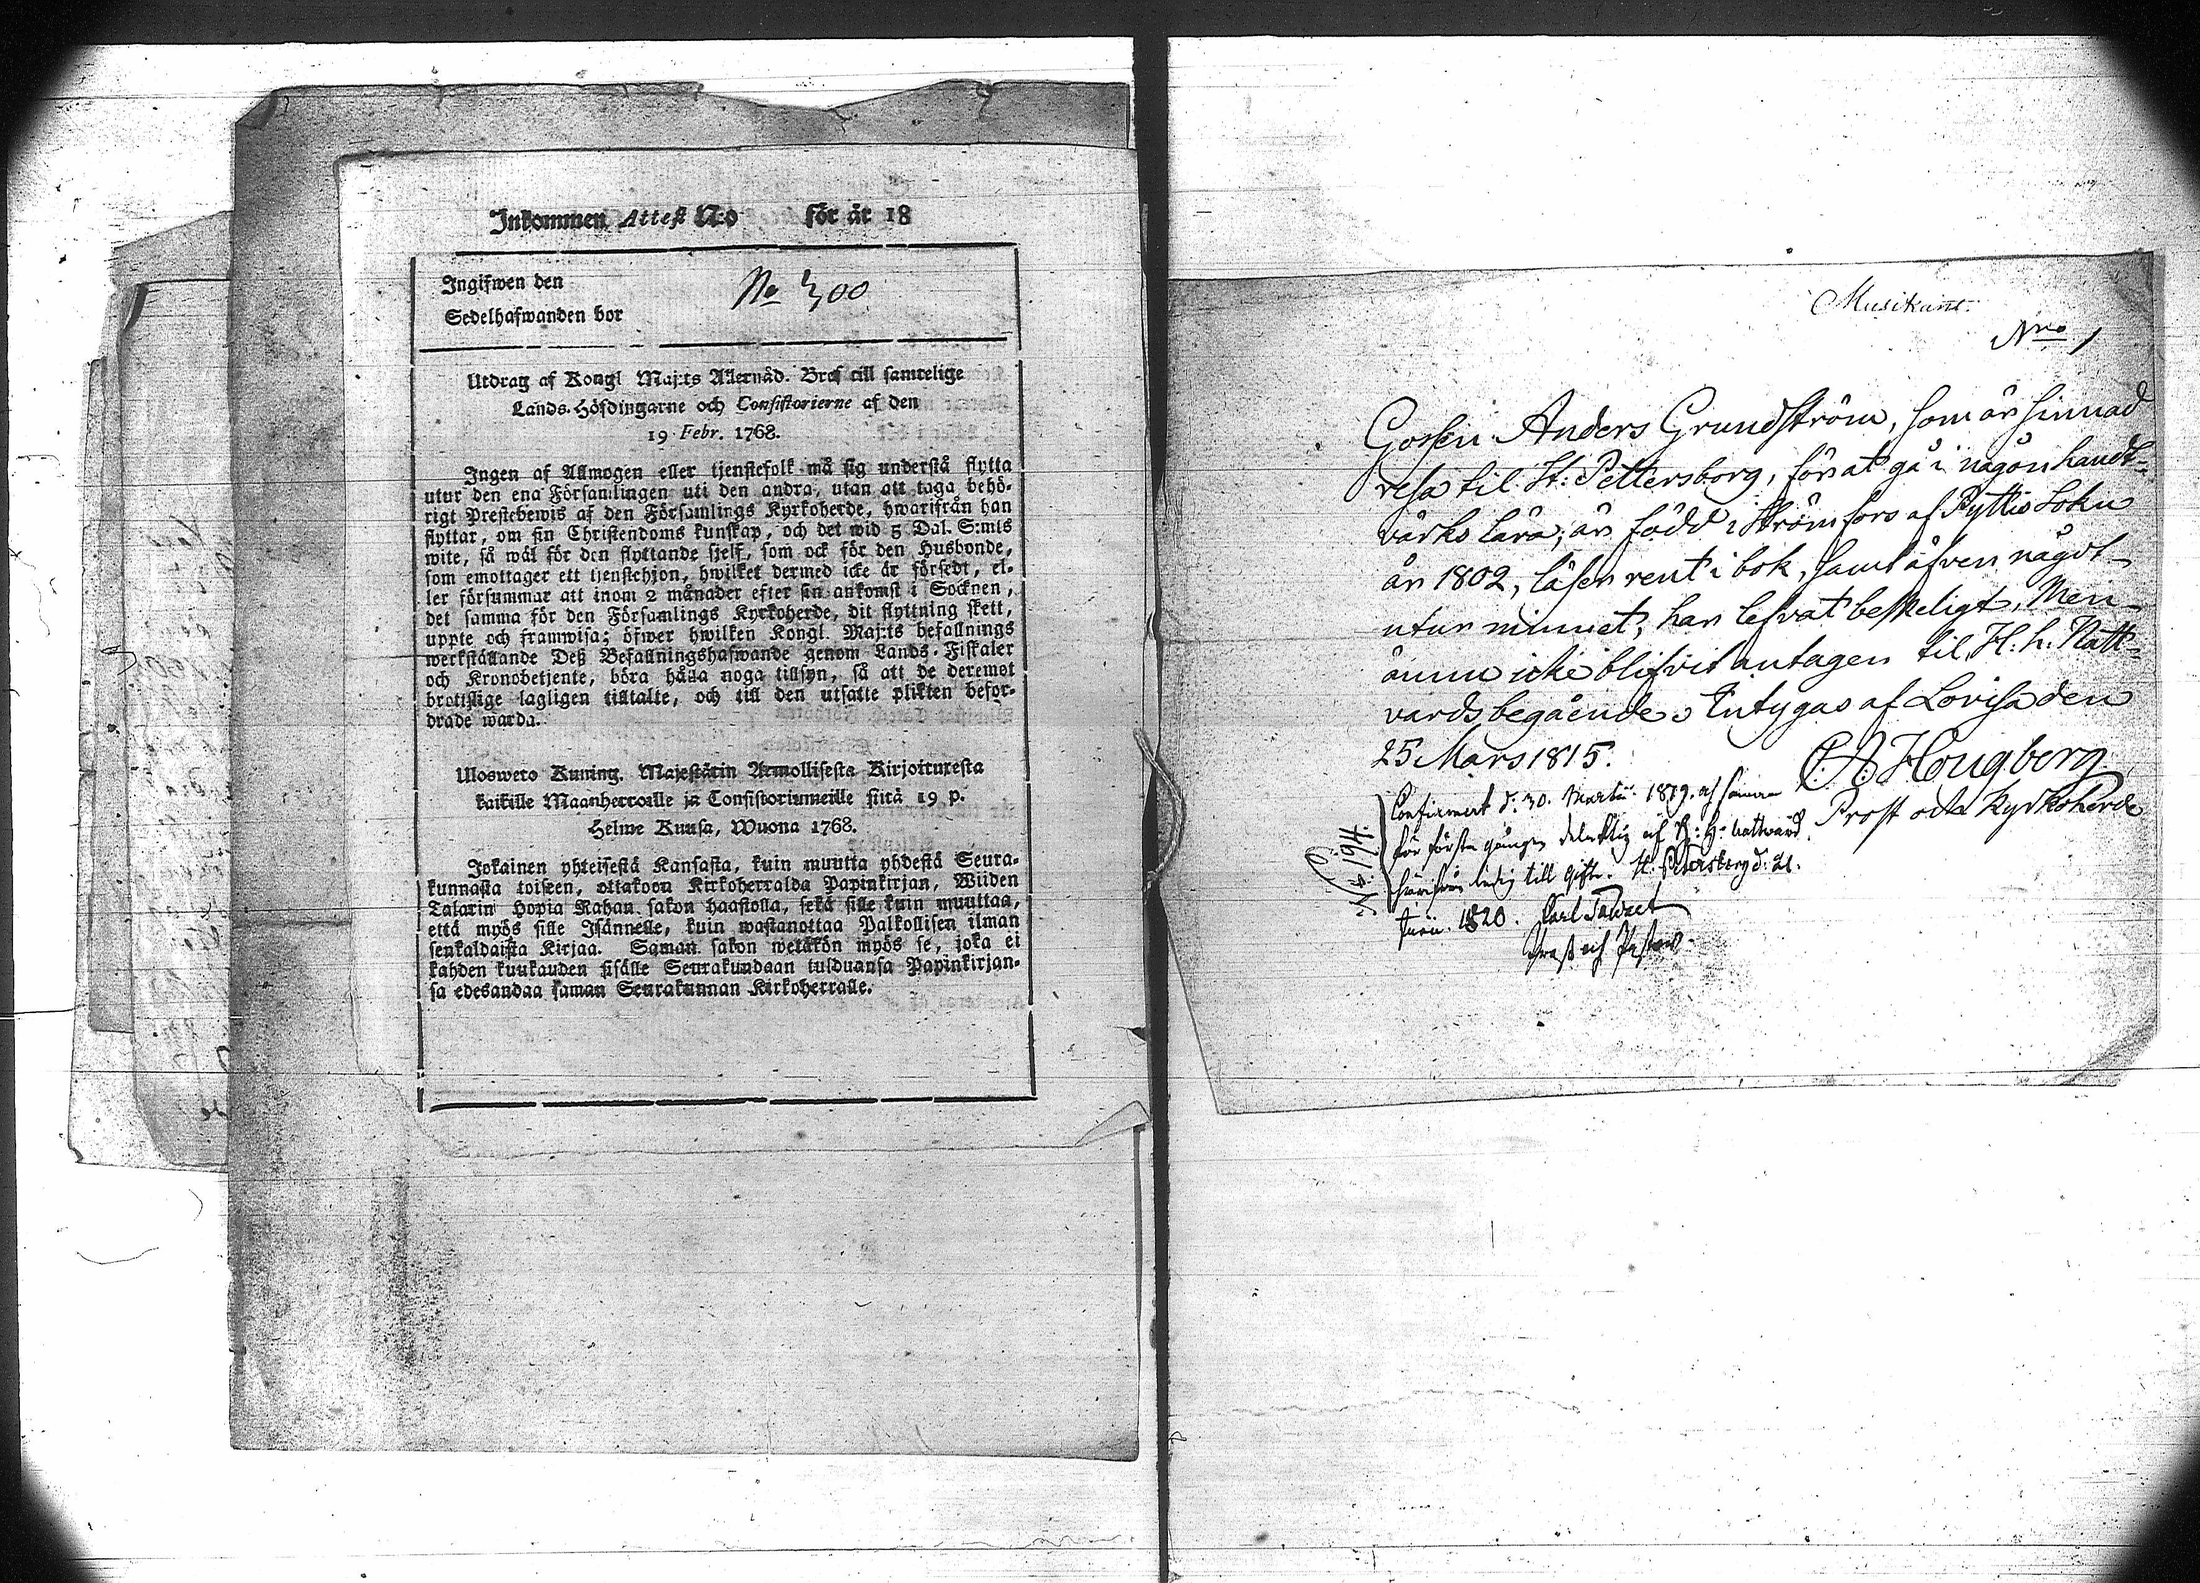 Inkommen Attest N:o för år 18
Ingifwen den
No 300
Sedelhafwanden bor
Utdrag af Kongl Maj:ts Allernåd. Bref till samtelige
Lands-Höfdingarne och Consistorierne af den
19 Febr. 1768.
Ingen af Allmogen eller tjenstefolk må sig understå flytta
utur den ena Församlingen uti den andra, utan att taga behö-
rigt Prestebewis af den Församlings Kyrkoherde, hwarifrån han
flyttar, om sin Christendoms kunskap, och det wid 5 Dal. S:mts
wite, så wäl för den flyttande sjelf, som ock för den Husbonde,
som emottager ett tjenstehjon, hwilket dermed icke är försedt, el-
ler försummar att inom 2 månader efter sin ankomst i Socknen,
det samma för den Församlings Kyrkoherde, dit flyttning skett,
uppte och framwisa; öfwer hwilken Kongl. Maj:ts befallnings
werkställande Deß Befallningshafwande genom Lands-Fiskaler
och Kronobetjente, böra hålla noga tillsyn, så att de deremot
brottslige lagligen tilltalte, och till den utsatte plikten befor-
drade warda.
Ulosweto Kuning. Majestätin Armollisesta Kirjotturesta
kaikille Maanherroille ja Consistoriumeille siitä 19 p.
Helme Kuusa, Wuona 1768.
Jokainen yhteisestä Kansasta, kuin muutta yhdestä Seura-
kunnasta toiseen, ottakoon Kirkoherralda Papinkirjan, Wiiden
Talarin Hopia Rahan sakon haastolla, sekä sille kuin muuttaa,
että myös sille Isännelle, kuin wastanottaa Palkollisen ilman
senkaldaista Kirjaa. Saman sakon wetäkön myös se, joka ei
kahden kuukauden sisälle Seurakundaan tulduansa Papinkirjan-
sa edesandaa saman Seurakunnan Kirkoherralle.
Musikant.
Nro 1
Gossen Anders Grundström, som är sinnad
resa til St: Pettersborg, för at gå i någon handt-
värks lära, är född i Strömfors af Pyttis Sokn
år 1802, läser rent i bok, samt äfven något
utur minnet, har lefvat beskeligt, Men
ännu icke blifvit antagen til H. h. Natt-
vards begående, Intygas af Lovisa den
25 Mars 1815.
C: A: Hougberg
Prost och Kyrkoherde
Confirmert d: 30. Martii 1819. och samma
för första gången delaktig af H: H: nattvard.
härifrån ledig till gifte. St. Petersburg d: 21.
Junii 1820. Carl Tawast
Prost och Pastor.
No 194.